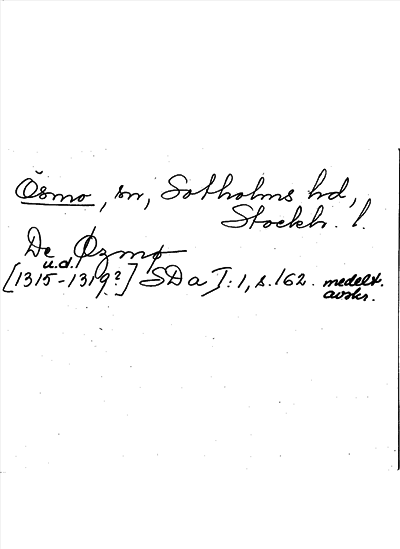 Ösmo, sn, Sotholms hd,
Stockh. l.
De Øzmø
u.d.
[1315-1319?] SD a I:1, s. 162. medelt.
avskr.